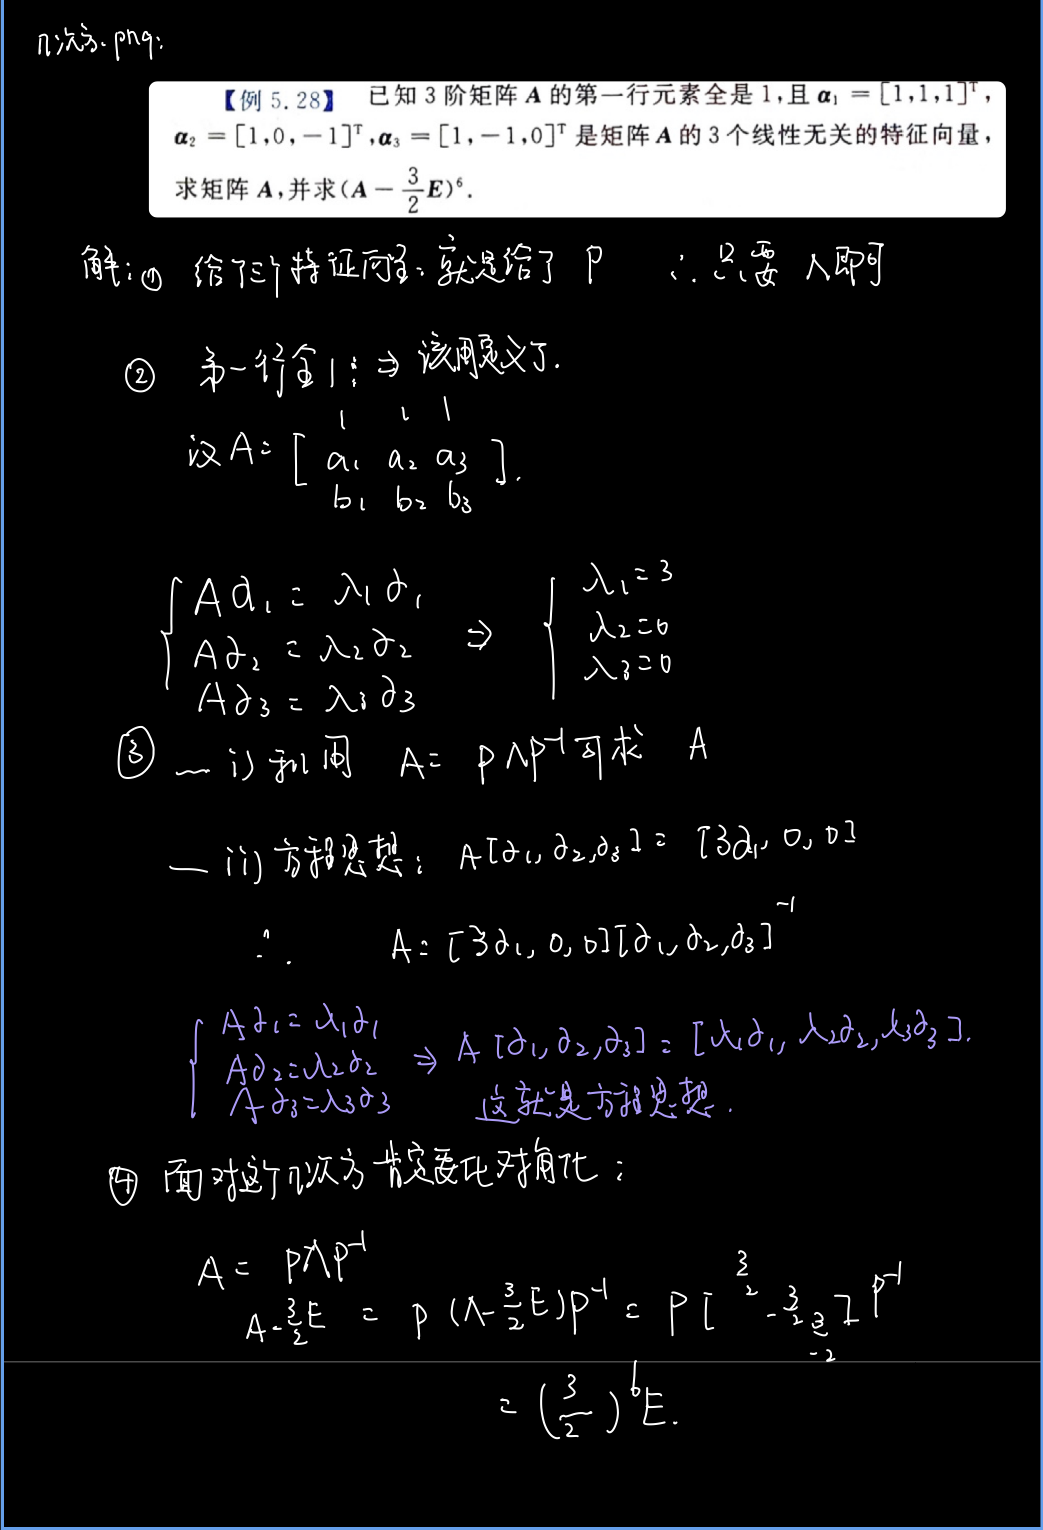 n次方.png:
【例 5.28】 已知 3 阶矩阵 A 的第一行元素全是 1,且 α₁ = [1,1,1]ᵀ,
α₂ = [1,0,-1]ᵀ,α₃ = [1,-1,0]ᵀ 是矩阵 A 的 3 个线性无关的特征向量,
求矩阵 A,并求(A - 3/2 E)⁶.
解:① 给了三个特征向量:就是给了 P ∴只需要 λ即可
② 第一行全1:⇒ 该用定义了.
1 1 1
设 A= [ a₁ a₂ a₃ ].
b₁ b₂ b₃
Aα₁ = λ₁α₁ ⇒ λ₁=3
Aα₂ = λ₂α₂ λ₂=0
Aα₃ = λ₃α₃ λ₃=0
③ — i) 利用 A= PΛP⁻¹可求 A
— ii) 方程思想: A[α₁, α₂,α₃] = [3α₁, 0, 0]
∴ A = [3α₁, 0, 0][α₁, α₂,α₃]⁻¹
Aα₁=λ₁α₁
Aα₂=λ₂α₂ ⇒ A [α₁, α₂,α₃] = [λ₁α₁, λ₂α₂,λ₃α₃].
Aα₃=λ₃α₃ 这就是方程思想.
④ 面对这个n次方 肯定要化对角化:
A = PΛP⁻¹
A-3/2E = P (Λ-3/2E)P⁻¹ = P [ 3/2 -3/2 -3/2 ] P⁻¹
= (3/2)⁶E.